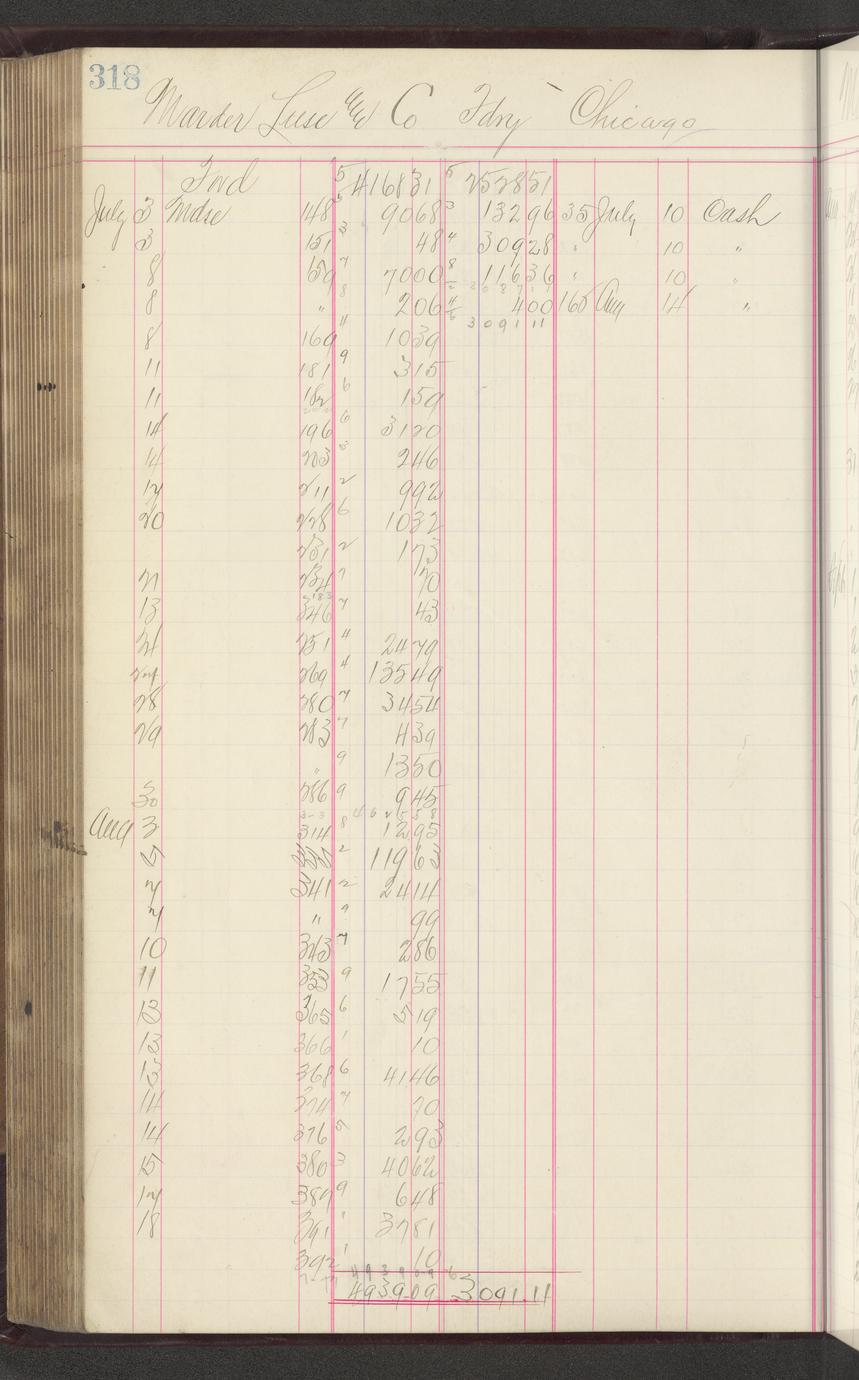 318
Marder Luse & Co Fdry Chicago
Fwd 5 416831 5 252851
July 3 Mdse 148 5 9068 3 13296 35 July 10 Cash
3 151 3 48 4 30928 " 10 "
8 159 7 7000 8 11636 " 10 "
8 " 8 206 4 400 165 Aug 14 "
8 169 4 1039 309111
11 181 9 315
11 182 6 159
14 196 6 3120
14 203 3 246
17 211 2 992
20 228 6 1032
231 2 173
21 234 7 70
13 246 7 43
24 251 4 2479
27 269 4 13549
28 280 7 3454
29 283 7 439
" 9 1350
30 286 9 945
Aug 3 314 8 1295
5 2 11963
7 341 2 2414
7 " 9 99
10 343 7 286
11 353 9 1755
13 365 6 519
13 366 1 10
13 368 6 4146
14 374 7 70
14 376 5 293
15 380 3 4062
17 389 9 648
18 391 1 3781
392 1 10
4939.09 3091.11